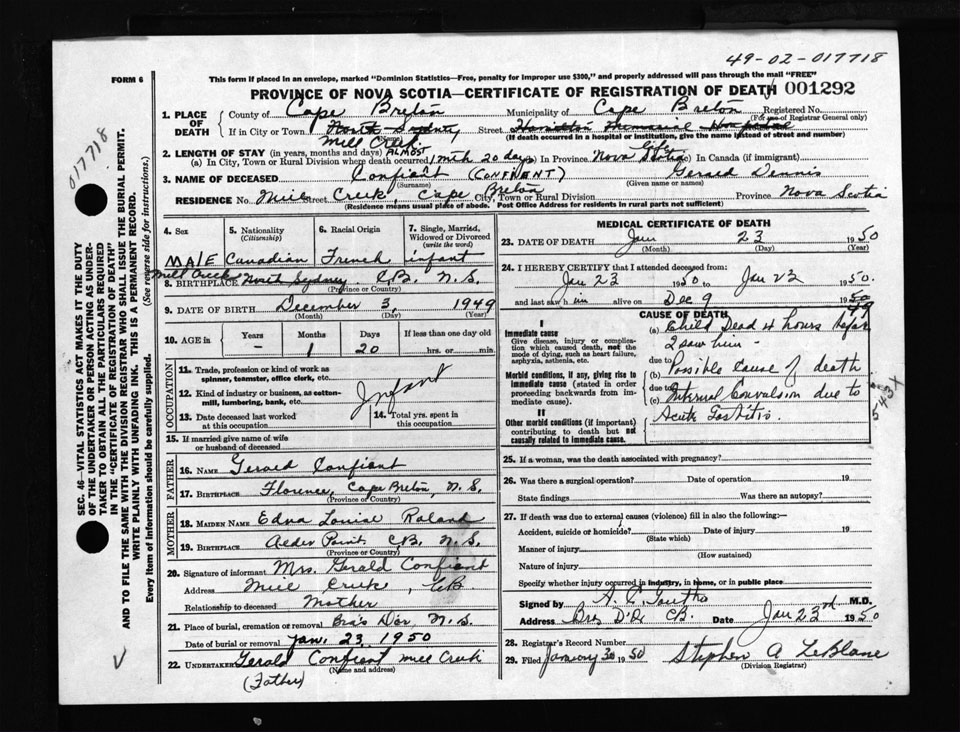 49-02-017718
FORM 6
This form if placed in an envelope, marked "Dominion Statistics—Free, penalty for improper use $300," and properly addressed will pass through the mail "FREE"
PROVINCE OF NOVA SCOTIA—CERTIFICATE OF REGISTRATION OF DEATH 001292
017718
SEC. 46—VITAL STATISTICS ACT MAKES IT THE DUTY
OF THE UNDERTAKER OR PERSON ACTING AS UNDER-
TAKER TO OBTAIN ALL THE PARTICULARS REQUIRED
IN THE "CERTIFICATE OF REGISTRATION OF DEATH"
AND TO FILE THE SAME WITH THE DIVISION REGISTRAR WHO SHALL ISSUE THE BURIAL PERMIT.
WRITE PLAINLY WITH UNFADING INK. THIS IS A PERMANENT RECORD.
Every item of information should be carefully supplied. (See reverse side for instructions.)
1. PLACE OF DEATH
County of Cape Breton Municipality of Cape Breton Registered No.
(For use of Registrar General only)
If in City or Town North Sydney Street Hamilton Memorial Hospital
(If death occurred in a hospital or institution, give the name instead of street and number)
Mill Creek
2. LENGTH OF STAY (in years, months and days) ALMOST
(a) In City, Town or Rural Division where death occurred 1 mth 20 days In Province Nova Scotia In Canada (if immigrant)
3. NAME OF DECEASED Confiant (CONFIENT) Gerald Dennis
(Surname) (Given name or names)
RESIDENCE No. Street Mill Creek, Cape Breton City, Town or Rural Division Province Nova Scotia
(Residence means usual place of abode. Post Office Address for residents in rural parts not sufficient)
4. Sex
MALE
5. Nationality
(Citizenship)
Canadian
6. Racial Origin
French
7. Single, Married, Widowed or Divorced
(write the word)
infant
Mill Creek
8. BIRTHPLACE North Sydney C.B. N.S.
(Province or Country)
9. DATE OF BIRTH December 3, 1949
(Month) (Day) (Year)
10. AGE in Years Months Days If less than one day old
- 1 20 hrs. or min.
OCCUPATION
11. Trade, profession or kind of work as
spinner, teamster, office clerk, etc.
12. Kind of industry or business, as cotton-
mill, lumbering, bank, etc.
Infant
13. Date deceased last worked
at this occupation
14. Total yrs. spent in
this occupation
15. If married give name of wife
or husband of deceased
FATHER
16. NAME Gerald Confiant
17. BIRTHPLACE Florence, Cape Breton, N.S.
(Province or Country)
MOTHER
18. MAIDEN NAME Edna Louise Roland
19. BIRTHPLACE Alder Point C.B. N.S.
(Province or Country)
20. Signature of informant Mrs. Gerald Confiant
Address Mill Creek, C.B.
Relationship to deceased Mother
21. Place of burial, cremation or removal Bras D'or, N.S.
Date of burial or removal Jan. 23, 1950
22. UNDERTAKER Gerald Confiant Mill Creek
(Name and address)
(Father)
MEDICAL CERTIFICATE OF DEATH
23. DATE OF DEATH Jan 23 1950
(Month) (Day)
24. I HEREBY CERTIFY that I attended deceased from:
Jan 23 1950 to Jan 23 1950.
and last saw him alive on Dec 9 1950
49
CAUSE OF DEATH
I
Immediate cause
Give disease, injury or complica-
tion which caused death, not the
mode of dying, such as heart failure,
asphyxia, asthenia, etc.
Morbid conditions, if any, giving rise to
immediate cause (stated in order
proceeding backwards from im-
mediate cause).
II
Other morbid conditions (if important)
contributing to death but not
causally related to immediate cause.
(a) Child Dead 4 hours before
I saw him -
due to
(b) Possible cause of death
due to
(c) Internal Convulsion due to
Acute Gastritis.
543x
25. If a woman, was the death associated with pregnancy?
26. Was there a surgical operation? Date of operation 19
State findings Was there an autopsy?
27. If death was due to external causes (violence) fill in also the following:—
Accident, suicide or homicide? Date of injury 19
(State which)
Manner of injury
(How sustained)
Nature of injury
Specify whether injury occurred in industry, in home, or in public place
Signed by M.D.
Address Bras D'Or CB. Date Jan 23rd 1950
28. Registrar's Record Number
29. Filed January 30 1950 Stephen A LeBlanc
(Division Registrar)